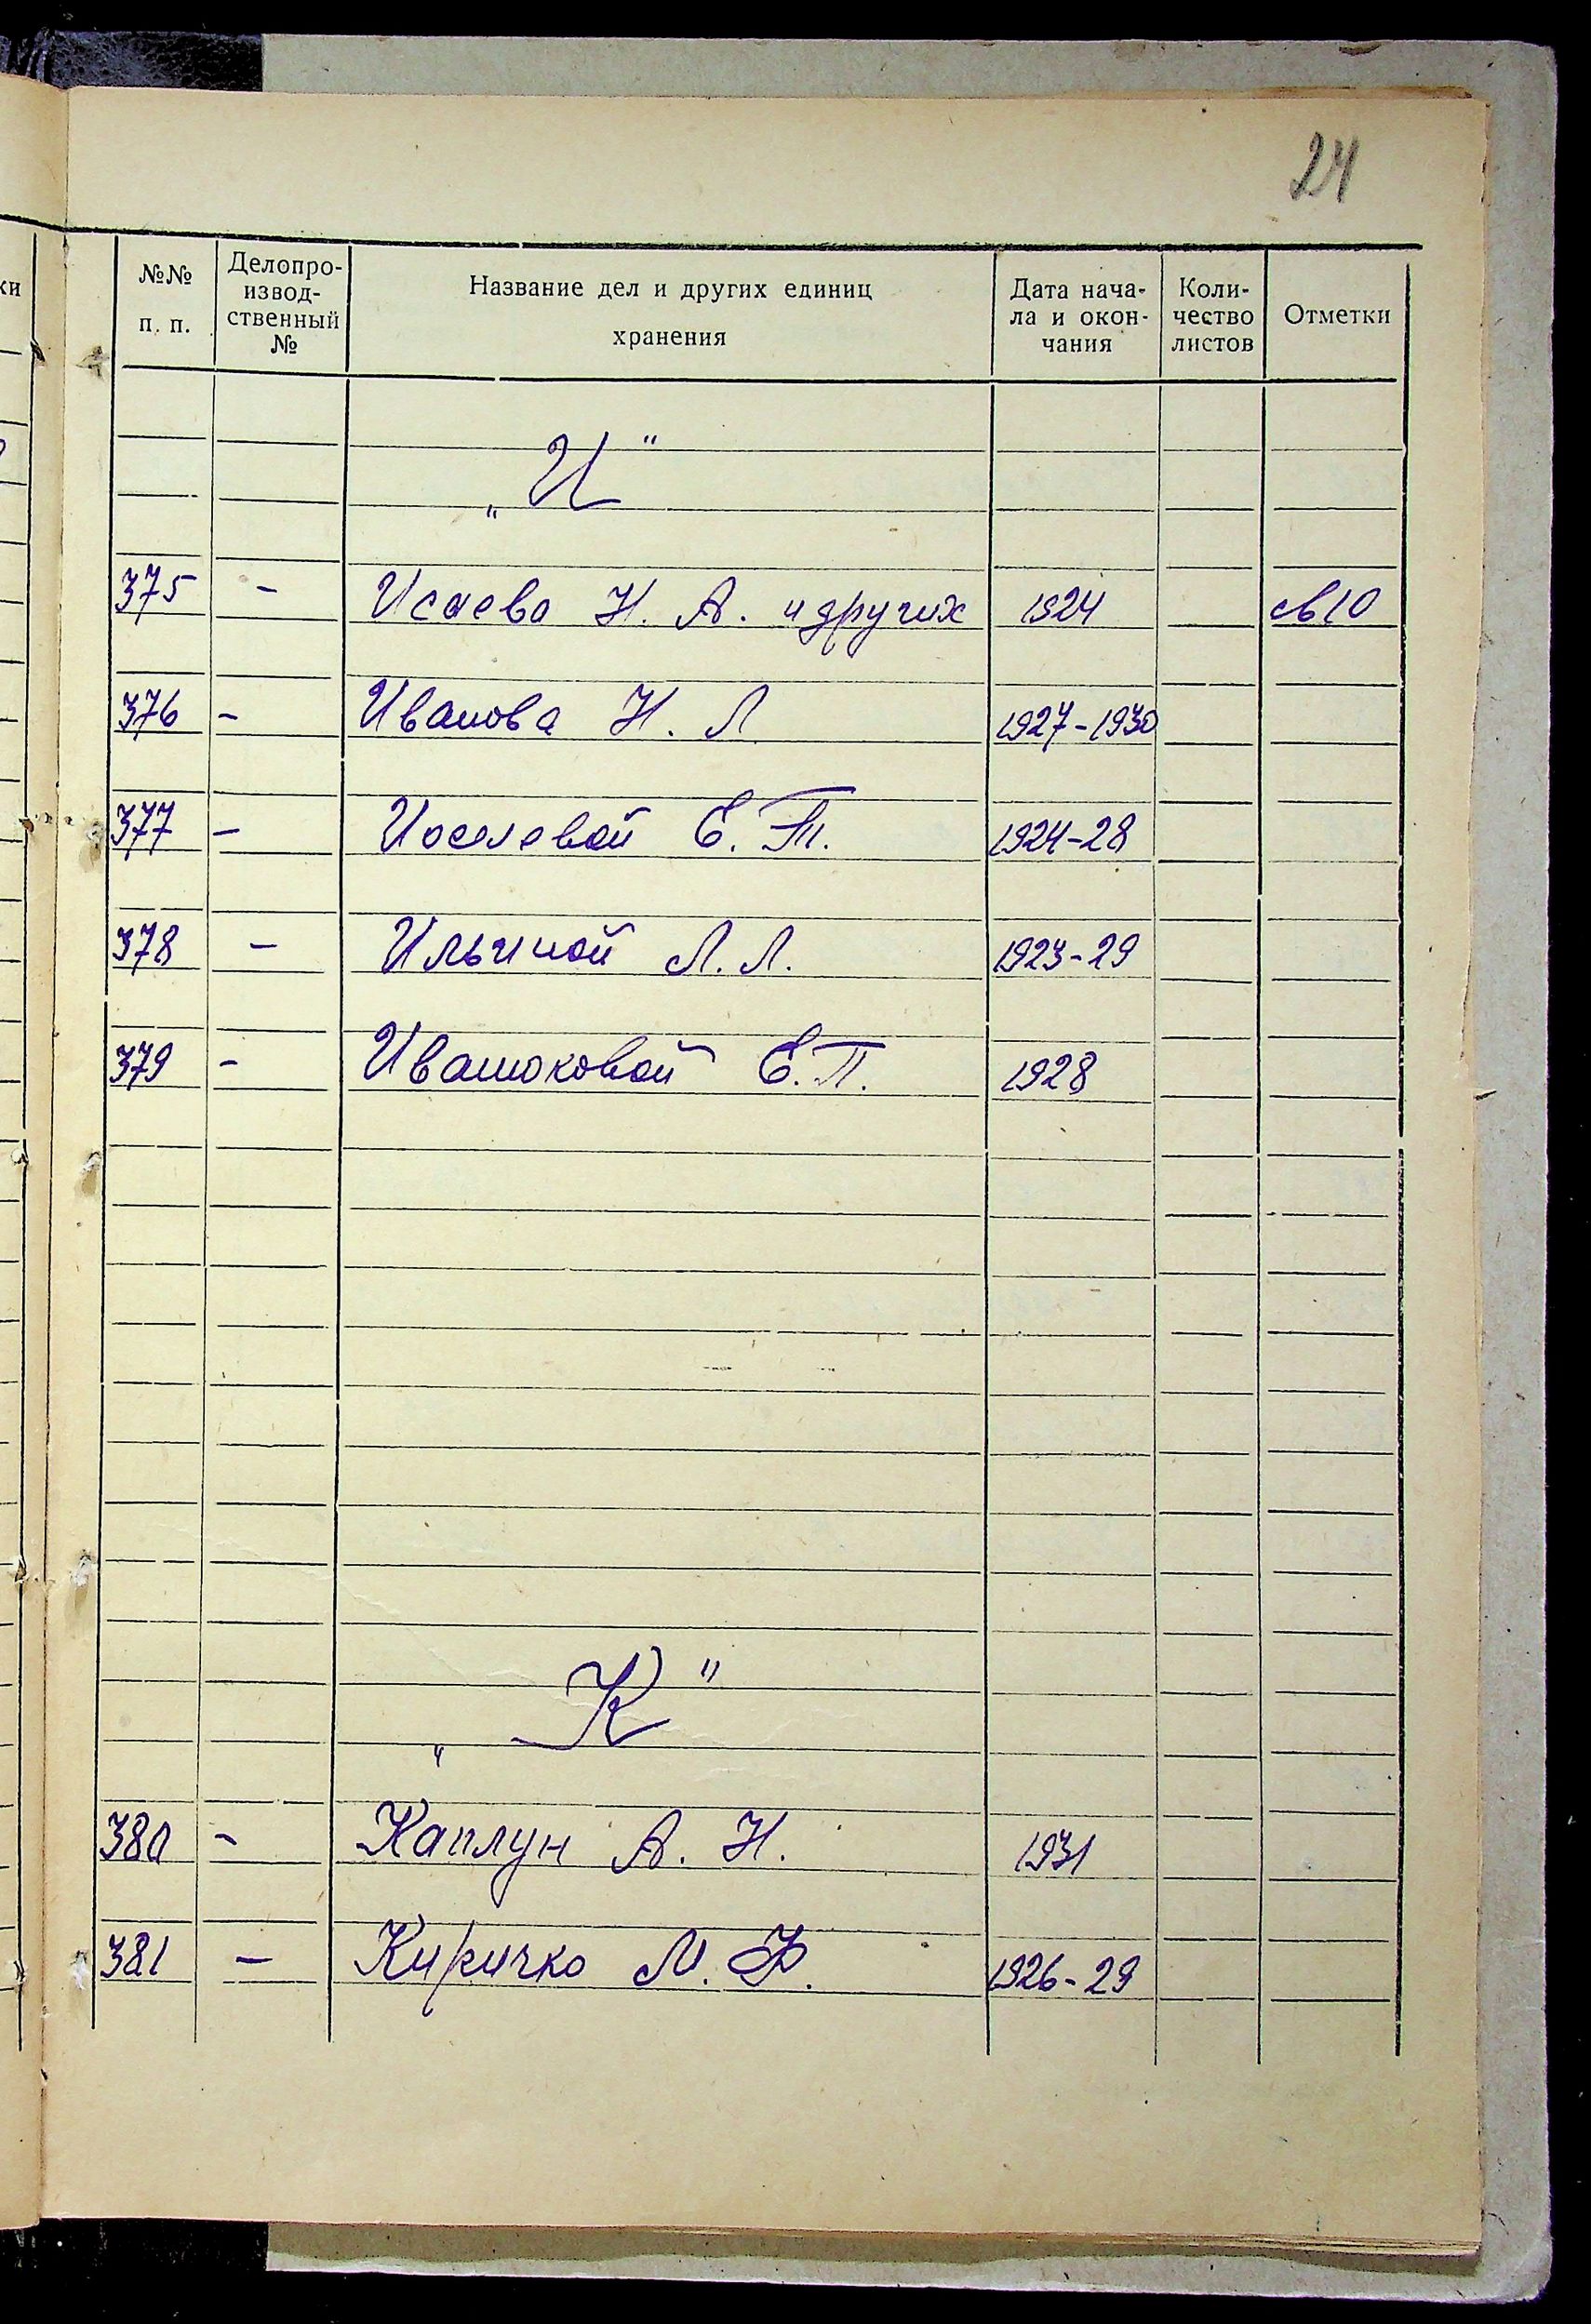 24
№№ п. п.
Делопро-
извод-
ственный
№
Название дел и других единиц
хранения
Дата нача-
ла и окон-
чания
Коли-
чество
листов
Отметки
„И"
375 - Исаева Н. А. и других 1924 св10
376 - Иванова Н. Л 1927-1930
377 - Иоселевой Е. Т. 1924-28
378 - Ильиной Л. Л. 1923-29
379 - Иванюковой Е. П. 1928
„К"
380 - Каплун А. Н. 1931
381 - Киричко М. Ф. 1926-29